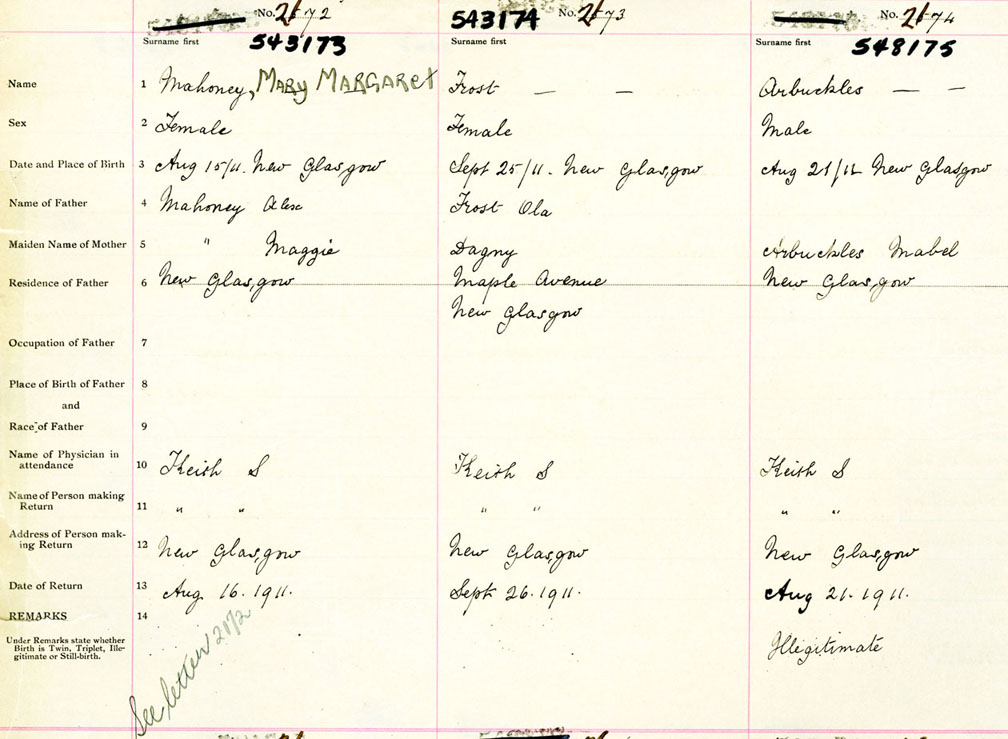 No. 2572 543174 No. 2573 No. 2574
Surname first 543173 Surname first Surname first 548175
Name 1 Mahoney, MARY MARGAREt Frost — — Arbuckles — —
Sex 2 Female Female Male
Date and Place of Birth 3 Aug 15/11. New Glasgow Sept 25/11. New Glasgow Aug 21/11 New Glasgow
Name of Father 4 Mahoney Alex Frost Ola
Maiden Name of Mother 5 " Maggie Dagny Arbuckles Mabel
Residence of Father 6 New Glasgow Maple Avenue New Glasgow
New Glasgow
Occupation of Father 7
Place of Birth of Father 8
and
Race of Father 9
Name of Physician in
attendance 10 Keith S Keith S Keith S
Name of Person making
Return 11 " " " " " "
Address of Person mak-
ing Return 12 New Glasgow New Glasgow New Glasgow
Date of Return 13 Aug 16. 1911. Sept 26. 1911. Aug 21. 1911.
REMARKS 14
Under Remarks state whether
Birth is Twin, Triplet, Ille-
gitimate or Still-birth.
Illegitimate
See letter